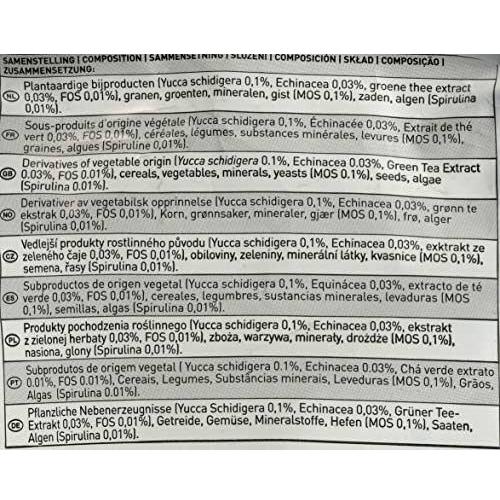 SAMENSTELLING | COMPOSITION | SAMMENSETNING | SLOŽENÍ | COMPOSICIÓN | SKŁAD | COMPOSIÇÃO |
ZUSAMMENSETZUNG:
NL Plantaardige bijproducten (Yucca schidigera 0,1%, Echinacea 0,03%, groene thee extract
0,03%, FOS 0,01%), granen, groenten, mineralen, gist (MOS 0,1%), zaden, algen (Spirulina
0,01%).
FR Sous-produits d'origine végétale (Yucca schidigera 0,1%, Échinacée 0,03%, Extrait de thé
vert 0,03%, FOS 0,01%), céréales, légumes, substances minérales, levures (MOS 0,1%),
graines, algues (Spirulina 0.01%).
GB Derivatives of vegetable origin (Yucca schidigera 0.1%, Echinacea 0.03%, Green Tea Extract
0.03%, FOS 0.01%), cereals, vegetables, minerals, yeasts (MOS 0.1%), seeds, algae
(Spirulina 0.01%).
NO Derivativer av vegetabilsk opprinnelse (Yucca schidigera 0,1%, Echinacea 0,03%, grønn te
ekstrak 0,03%, FOS 0,01%), Korn, grønnsaker, mineraler, gjær (MOS 0,1%), frø, alger
(Spirulina 0.01%).
CZ Vedlejší produkty rostlinného původu (Yucca schidigera 0,1%, Echinacea 0,03%, exktrakt ze
zeleného čaje 0,03%, FOS 0,01%), obiloviny, zeleniny, minerální látky, kvasnice (MOS 0,1%),
semena, řasy (Spirulina 0,01%).
ES Subproductos de origen vegetal (Yucca schidigera 0,1%, Equinácea 0,03%, extracto de té
verde 0,03%, FOS 0,01%), cereales, legumbres, sustancias minerales, levaduras (MOS
0,1%), semillas, algas (Spirulina 0.01%).
PL Produkty pochodzenia roślinnego (Yucca schidigera 0,1%, Echinacea 0,03%, ekstrakt
z zielonej herbaty 0,03%, FOS 0,01%), zboża, warzywa, mineraty, drożdże (MOS 0,1%),
nasiona, glony (Spirulina 0.01%).
PT Subprodutos de origem vegetal ( Yucca schidigera 0.1%, Echinacea 0.03%, Chá verde extrato
0.01%, FOS 0.01%), Cereais, Legumes, Substâncias minerais, Leveduras (MOS 0,1%), Grãos,
Algas (Spirulina 0.01%).
DE Pflanzliche Nebenerzeugnisse (Yucca Schidigera 0,1%, Echinacea 0,03%, Grüner Tee-
Extrakt 0,03%, FOS 0,01%), Getreide, Gemüse, Mineralstoffe, Hefen (MOS 0,1%), Saaten,
Algen (Spirulina 0,01%).